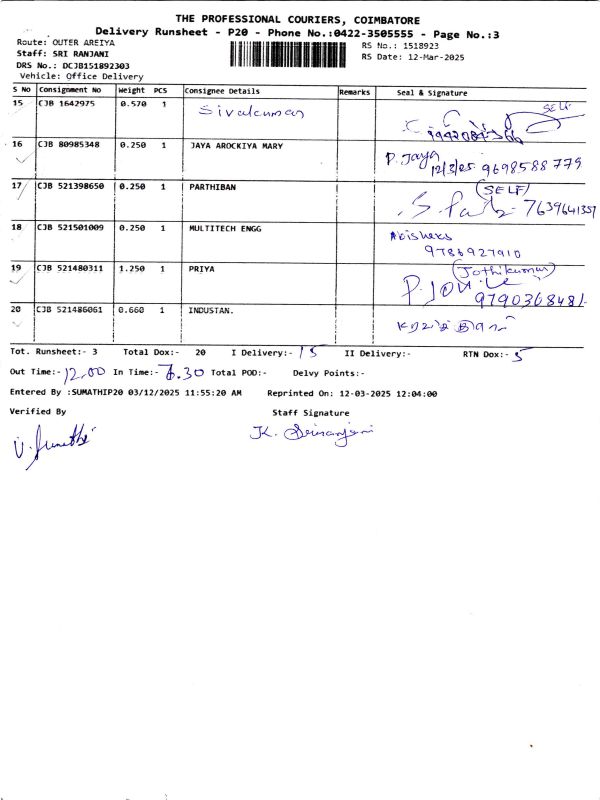 THE PROFESSIONAL COURIERS, COIMBATORE
Delivery Runsheet - P20 - Phone No.:0422-3505555 - Page No.:3
Route: OUTER AREIYA
RS No.: 1518923
Staff: SRI RANJANI
RS Date: 12-Mar-2025
DRS No.: DCJB151892303
Vehicle: Office Delivery
S No Consignment No Weight PCS Consignee Details Remarks Seal & Signature
15 CJB 1642975 0.570 1 Sivakumar SELF
16 CJB 80985348 0.250 1 JAYA AROCKIYA MARY P. Jaya
12/3/25 9698588779
17 CJB 521398650 0.250 1 PARTHIBAN (SELF)
7639641357
18 CJB 521501009 0.250 1 MULTITECH ENGG
9786927910
19 CJB 521480311 1.250 1 PRIYA (Jothikumar)
9790368481
20 CJB 521486061 0.660 1 INDUSTAN.
Tot. Runsheet:- 3 Total Dox:- 20 I Delivery:- 15 II Delivery:- RTN Dox:- 5
Out Time:- 12.00 In Time:- 6.30 Total POD:- Delvy Points:-
Entered By :SUMATHIP20 03/12/2025 11:55:20 AM Reprinted On: 12-03-2025 12:04:00
Verified By Staff Signature